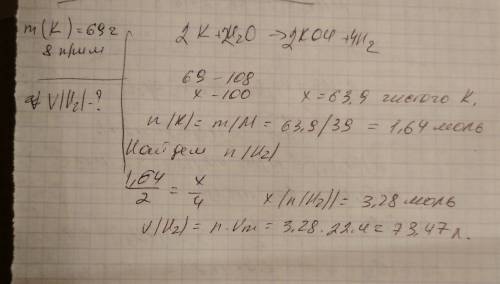 m(K)=69г
8% прим
V(H₂)-?
2K+2H₂O→2KOH+4H₂
69-108
x-100 x=63,9 чистого K.
n(K)=m/M=63,9/39=1,64 моль
Найдем n(H₂)
1,64/2=x/4 x(n(H₂))=3,28 моль
V(H₂)=n·Vm=3,28·22,4=73,47 л.